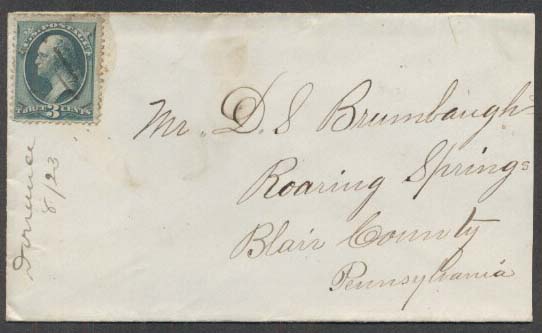 U.S. POSTAGE
THREE 3 CENTS
Mr. D. S Brumbaugh
Roaring Springs
Blair County
Pennsylvania
Dorrance
8/23